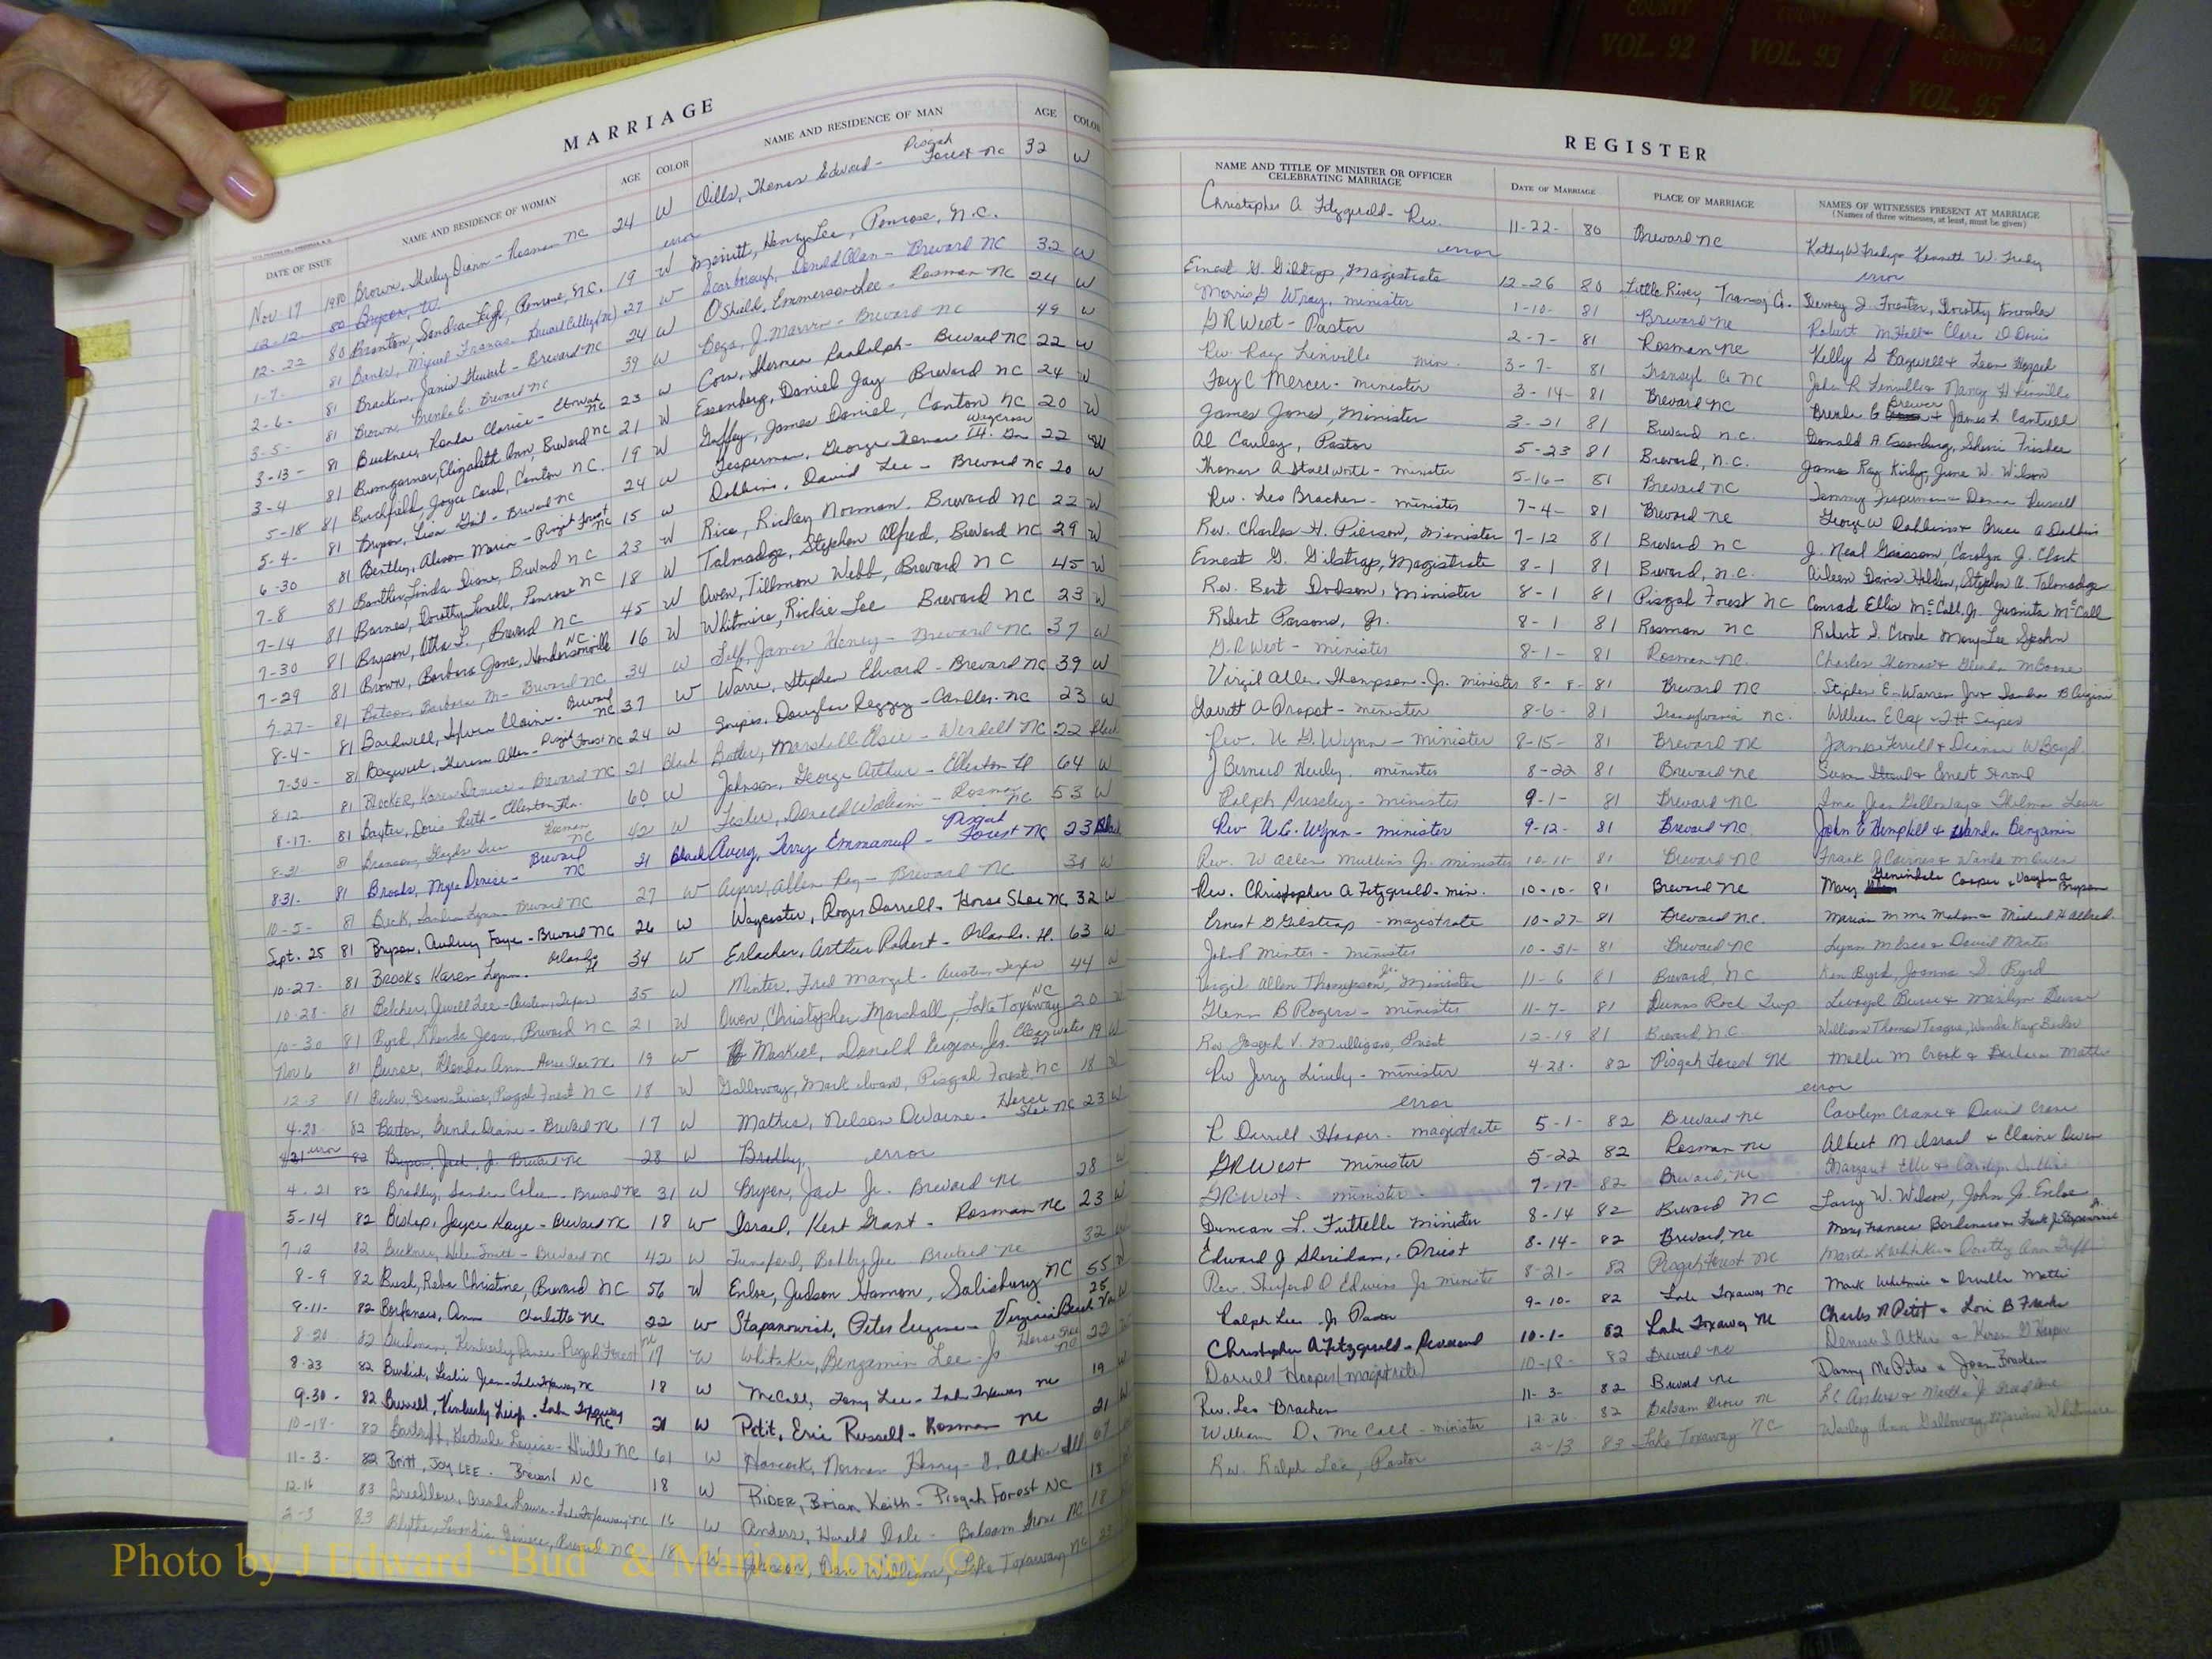 COUNTY
VOL. 90
VOL. 92
COUNTY
VOL. 93
COUNTY
VOL. 95
MARRIAGE
DATE OF ISSUE
NAME AND RESIDENCE OF WOMAN
AGE
COLOR
NAME AND RESIDENCE OF MAN
AGE
COLOR
Nov 17 1980 Brown, Diann - Rosman NC 24 W Dills, Thomas Edward - Pisgah Forest NC 32 W
12-12 80 Bryson, W. error
12-22 80 Branton, Sondra Leigh, Penrose, N.C. 19 W Merritt, Henry Lee, Penrose, N.C.
1-7- 81 Banks, Miguel Frances 27 W Scarborough, Donald Alan - Brevard NC 32 W
2-6- 81 Bracken, Janis Stewart - Brevard NC 24 W O'Shield, Emmerson Lee - Rosman NC 24 W
3-5- 81 Brown Brenda C. Brevard NC 39 W J. Marvin - Brevard NC 49 W
3-13- 81 Buckner, Ronda Clarice - NC 23 W Randolph - Brevard NC 22 W
3-4 81 Bumgarner, Elizabeth Ann, Brevard NC 21 W Essenberg, Daniel Jay Brevard NC 24 W
5-18 81 Burchfield, Joyce Carol, Canton N.C. 19 W Guffey, James Daniel, Canton NC 20 W
5-4- 81 Bryson, Lisa Gail - Brevard NC 24 W Fesperman, George Thomas III. Waycross Ga 22 W
6-30 81 Bentley, Alison Maria - Pisgah Forest NC 15 W Dobbins, David Lee - Brevard NC 20 W
7-8 81 Linda Diane, Brevard NC 23 W Rice, Rickey Norman, Brevard NC 22 W
7-14 81 Barnes, Dorothy Lowell, Penrose NC 18 W Talmadge, Stephen Alfred, Brevard NC 29 W
7-30 81 Bryson, Otha L., Brevard NC 45 W Owen, Tillmon Webb, Brevard NC 45 W
7-29 81 Brown, Barbara Jane, Hendersonville NC 16 W Whitmire, Rickie Lee Brevard NC 23 W
7-27- 81 Batson, Barbara M - Brevard NC 34 W Self, James Henry - Brevard NC 37 W
8-4- 81 Bardwell, Sylvia Elaine - Brevard NC 37 W Warren, Stephen Edward - Brevard NC 39 W
7-30- 81 Bagwell, Theresa Allen - Pisgah Forest NC 24 W Snipes, Douglas - Candler NC 23 W
8-12 81 BLOCKER, Karen Denise - Brevard NC 21 Black Butler, Marshall - Wendell NC 22 Black
8-17- 81 Baxter, Doris Ruth - Ellenton Fla. 60 W Johnson, George Arthur - Ellenton Fl 64 W
8-31 81 Rosman NC 42 W Fisher, Donald William - Rosman NC 53 W
8-31- 81 Brooks, Myra Denise - Brevard NC 21 Black Avery, Terry Emmanuel - Pisgah Forest NC 23 Black
10-5- 81 Beck, Sandra Lynn - Brevard NC 27 W Ayers, Allen Ray - Brevard NC 31 W
Sept. 25 81 Bryson, Audrey Faye - Brevard NC 26 W Waycaster, Roger Darrell - Horse Shoe NC 32 W
10-27- 81 BROOKS Karen Lynn. Orlando Fl 34 W Erlacher, Arthur Robert - Orlando, Fl. 63 W
10-28- 81 Belcher, Jewell Lee - Austin, Texas 35 W Minter, Fred - Austin, Texas 44 W
10-30 81 Byrd, Rhonda Jean, Brevard NC 21 W Owen, Christopher Marshall, Lake Toxaway NC 20 W
Nov 6 81 Ann - Horse Shoe NC 19 W Maskiel, Donald Eugene, Jr. Clearwater 19 W
12-3 81 Becker, Dawn Louise, Pisgah Forest NC 18 W Galloway, Mark Pisgah Forest, NC 18 W
4-28- 82 Barton, Brenda Diane - Brevard NC 17 W Mathis, Nelson Dwaine - Horse Shoe NC 23 W
4-21 error 82 Bryson, Jack, Jr. Brevard NC 28 W Bradley error
4-21 82 Bradley, Sandra - Brevard NC 31 W Bryson, Jack Jr. Brevard NC 28 W
5-14 82 Bishop, Joyce Kaye - Brevard NC 18 W Israel, Kent Grant - Rosman NC 23 W
7-12 82 Buckner, - Brevard NC 42 W Bobby Joe - Brevard NC 32 W
8-9 82 Bush, Reba Christine, Brevard NC 56 W Enloe, Judson Harmon, Salisbury NC 55 W
8-11- 82 Bordenaro, Ann Charlotte NC 22 W Stapanowich, Peter Eugene - Virginia Beach Va 25 W
8-20 82 Kimberly - Pisgah Forest NC 17 W Whitaker, Benjamin Lee - Jr Horse Shoe NC 22 W
8-23 82 Leslie Jean - Lake Toxaway NC 18 W McCall, Tony Lee - Lake Toxaway NC 19 W
9-30- 82 Burrell, Kimberly Leigh - Lake Toxaway NC 21 W Petit, Eric Russell - Rosman NC 21 W
10-18- 82 Gertrude Louise - H'ville NC 61 W Hancock, Norman Henry - 67
11-3- 82 Britt, JOY LEE - Brevard NC 18 W RIDER, Brian Keith - Pisgah Forest NC 18
12-16 83 Breedlove, Brenda Laura - Lake Toxaway, NC 16 W Anders, Harold Dale - Balsam Grove NC 18
2-3 83 Blythe, Brevard NC 18 W Johnson, Dan William, Lake Toxaway NC
REGISTER
NAME AND TITLE OF MINISTER OR OFFICER CELEBRATING MARRIAGE
DATE OF MARRIAGE
PLACE OF MARRIAGE
NAMES OF WITNESSES PRESENT AT MARRIAGE
(Names of three witnesses, at least, must be given)
Christopher A Fitzgerald - Rev. 11-22- 80 Brevard NC Kathy W Kenneth W.
error error
Ernest G. Gilstrap, Magistrate 12-26 80 Little River, Transy Co. Dewey J. Forester, Dorothy Knowles
Morris G Wray, minister 1-10- 81 Brevard NC Robert M Hall & Clara D Davis
G R West - Pastor 2-7- 81 Rosman NC Kelly S Bagwell & Leon
Rev. Ray Linville min. 3-7- 81 Transyl. Co NC John R Linville & Nancy H Linville
Foy C Mercer - minister 3-14- 81 Brevard NC Brenda G Brewer & James L Cantrell
James Jones, Minister 3-21 81 Brevard N.C. Donald A. Essenburg, Sherri Frisbee
Al Cauley, Pastor 5-23 81 Brevard, N.C. James Ray Kirby, June W. Wilson
Thomas A Stallworth - minister 5-16- 81 Brevard NC Tammy Fesperman & Donna Russell
Rev. Leo Bracken - minister 7-4- 81 Brevard NC George W Dobbins & Bruce A Dobbins
Rev. Charles H. Pierson, Minister 7-12 81 Brevard NC J. Neal Grissom, Carolyn J. Clark
Ernest G. Gilstrap, Magistrate 8-1 81 Brevard, N.C. Aileen Davis Holden, Stephen A. Talmadge
Rev. Bert Dodson, Minister 8-1 81 Pisgah Forest NC Conrad Ellis McCall, Jr. Juanita McCall
Robert Parsons, Jr. 8-1 81 Rosman NC Robert S. Mary Lee Spahn
G.R West - minister 8-1- 81 Rosman NC. Charles Thomas & Glenda M Boone
Virgil Allen Thompson - Jr. minister 8-8-81 Brevard NC Stephen E. Warren Jr & Sandra B
Garrett A Propst - minister 8-6- 81 Transylvania NC. William E Cox & T.H Snipes
Rev. U G. Wynn - minister 8-15- 81 Brevard NC James Ferrell & Deanna W Boyd
J Bernard Hurley. minister 8-22 81 Brevard NC Susan Stroud & Ernest Stroud
Ralph Pressley - minister 9-1- 81 Brevard NC Ima Jean Galloway & Thelma
Rev U.G. Wynn - minister 9-12- 81 Brevard NC. John E Hemphill & Wanda Benjamin
Rev. W Allen Mullinix Jr. minister 10-11- 81 Brevard NC Frank J & Wanda M Owen
Rev. Christopher A Fitzgerald - min. 10-10- 81 Brevard NC Mary Cooper & Vaughn A Bryson
Ernest G Gilstrap - magistrate 10-27- 81 Brevard NC. Marion M McMahan & Michael H Allred.
John P Minter - minister 10-31- 81 Brevard NC Lynn & David Minter
Virgil Allen Thompson, Jr. Minister 11-6 81 Brevard, NC Ken Byrd, Joanna S. Byrd
Glenn B Rogers - minister 11-7- 81 Dunns Rock Twp. & Marilyn
Rev Joseph V. Mulligan, Priest 12-19 81 Brevard, N.C. William Thomas Teague, Wanda Kay Becker
Rev Jerry - minister 4-28- 82 Pisgah Forest NC Mollie M Crook & Barbara Mathis
error error
R Darrell Hooper - magistrate 5-1- 82 Brevard NC Carolyn Crane & David Crane
G R West minister 5-22 82 Rosman NC Albert M Israel & Elaine Owen
G R West - minister - 7-17- 82 Brevard, NC Margaret
Duncan L. Futrelle minister 8-14 82 Brevard NC Larry W. Wilson, John J. Enloe
Edward J Sheridan, - Priest 8-14- 82 Brevard, NC Mary Frances Bordenaro & Frank J. Stapanowich Jr.
Rev. Shuford O Edwins Jr minister 8-21- 82 Pisgah Forest NC Martha K Whitaker & Dorothy Ann
Ralph Lee Jr Pastor 9-10- 82 Lake Toxaway NC Mark Whitmire &
Christopher A Fitzgerald - Reverend 10-1- 82 Lake Toxaway NC Charles R Petit & Lori B Franks
Darrell Hooper (magistrate) 10-18- 82 Brevard NC Denese S & Karen G Hooper
Rev. Leo Bracken 11-3- 82 Brevard NC Danny McPeters & Joan Bracken
William D. McCall - minister 12-26- 82 Balsam Grove NC L C Anders & Martha J Breedlove
Rev. Ralph Lee, Pastor 2-13 83 Lake Toxaway NC Wesley Ann Galloway, Marvin Whitmire
Photo by J Edward "Bud" & Marion Josey ©